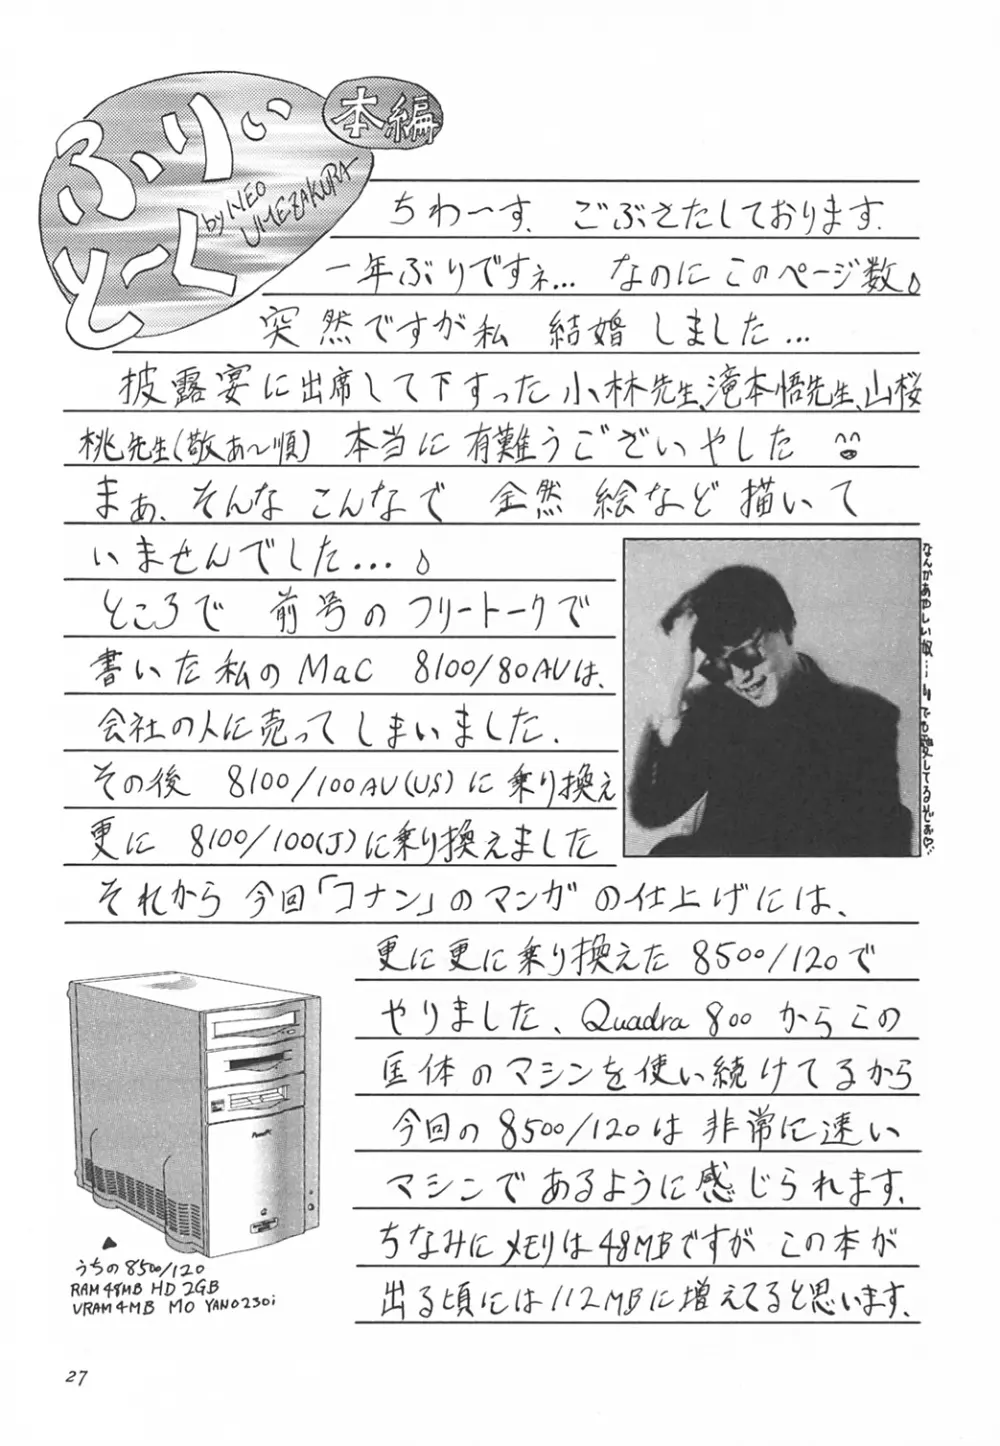 ふりぃ
とーく
本編
by NEO
UMEZAKURA
ちわ〜す、ごぶさたしております.
一年ぶりですネ… なのにこのページ数。
突然ですが私 結婚しました…
披露宴に出席して下すった小林先生、滝本悟先生、山桜
桃先生(敬あ〜順) 本当に有難うございやした
まぁ、そんなこんなで 全然 絵など描いて
いませんでした…。
ところで 前号のフリートークで
書いた私のMaC 8100/80AVは、
会社の人に売ってしまいました.
その後 8100/100AV(US)に乗り換え
更に 8100/100(J)に乗り換えました
それから今回「コナン」のマンガの仕上げには、
更に更に乗り換えた 8500/120で
やりました、Quadra 800 からこの
匡体のマシンを使い続けてるから
今回の8500/120は非常に速い
マシンであるように感じられます.
ちなみにメモリは48MBですがこの本が
出る頃には112MBに増えてると思います.
なんかあやしい奴… でも愛してるぞぉ♡…
うちの8500/120
RAM48MB HD 2GB
VRAM4MB MO YANO230i
27